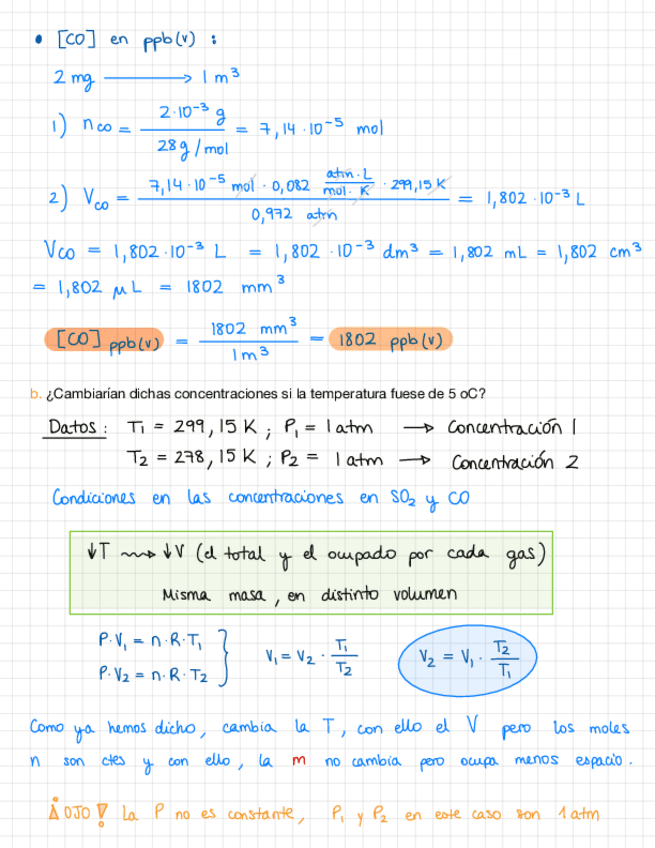 • [CO] en ppb(v) :
2 mg ⟶ 1 m³
1) nco = 2·10⁻³ g / 28 g/mol = 7,14 · 10⁻⁵ mol
2) Vco = 7,14 · 10⁻⁵ mol · 0,082 atm·L / mol·K · 299,15 K / 0,972 atm = 1,802 · 10⁻³ L
Vco = 1,802 · 10⁻³ L = 1,802 · 10⁻³ dm³ = 1,802 mL = 1,802 cm³
= 1,802 μL = 1802 mm³
[CO] ppb(v) = 1802 mm³ / 1 m³ = 1802 ppb(v)
b. ¿Cambiarían dichas concentraciones si la temperatura fuese de 5 oC?
Datos : T₁ = 299,15 K ; P₁ = 1 atm → Concentración 1
T₂ = 278,15 K ; P₂ = 1 atm → Concentración 2
Condiciones en las concentraciones en SO₂ y CO
↓T ⇝ ↓V (el total y el ocupado por cada gas)
Misma masa, en distinto volumen
P·V₁ = n·R·T₁
P·V₂ = n·R·T₂ } V₁ = V₂ · T₁/T₂ V₂ = V₁ · T₂/T₁
Como ya hemos dicho, cambia la T, con ello el V pero los moles
n son ctes y con ello, la m no cambia pero ocupa menos espacio.
¡OJO! La P no es constante, P₁ y P₂ en este caso son 1 atm